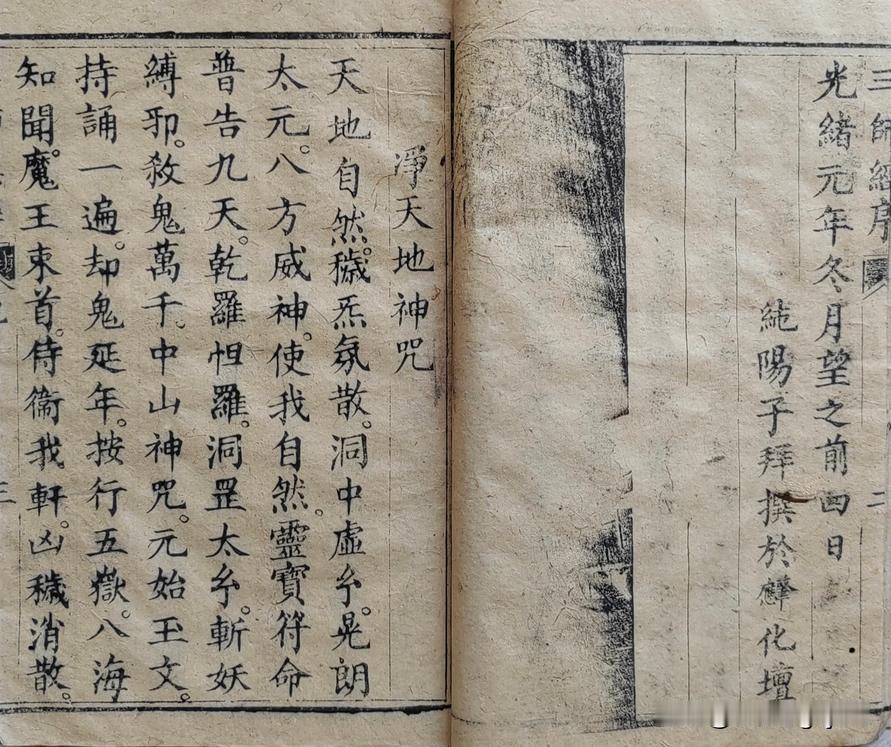 三師經序 二
光緒元年冬月望之前四日
純陽子拜撰於化壇
凈天地神咒
天地自然。穢炁氛散。洞中虛玄。晃朗
太元。八方威神。使我自然。靈寶符命
普告九天。乾羅怛羅。洞罡太玄。斬妖
縛邪。殺鬼萬千。中山神咒。元始玉文。
持誦一遍。却鬼延年。按行五嶽。八海
知聞。魔王束首。侍衛我軒。凶穢消散。
三